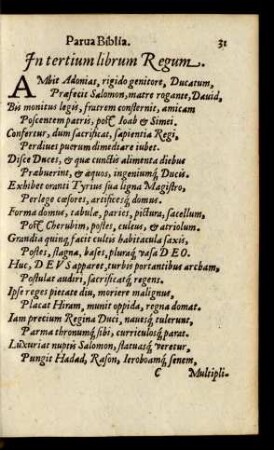 Parua Biblia. 31
In tertium librum Regum.
AMbit Adonias, rigido genitore, Ducatum,
Præfecit Salomon, matre rogante, David,
Bis monitus legis, fratrem consternit, amicam
Poscentem patris, post Ioab & Simei.
Confertur, dum sacrificat, sapientia Regi,
Perdius puerum dimediare iubet.
Disce Duces, & quæ cunctis alimenta diebus
Præbuerint, & aquos, ingeniumq́ Ducis.
Exhibet oranti Tyrius sua ligna Magistro,
Perlege cæsores, artificesq́ domus.
Forma domus, tabulæ, paries, pictura, sacellum,
Post Cherubim, postes, cultus, & atriolum.
Grandia quinq́ facit cultis habitacula saxis,
Postes, stagna, bases, pluraq́ vasa DEO.
Huc, DEVS apparet, turbis portantibus archam,
Postulat audiri, sacrificatq́ regens.
Ipse reges pietate diu, moriere malignus,
Placat Hiram, munit oppida, regna domat.
Iam precium Regina Duci, nauesq́ tulerunt,
Parma thronumq́ sibi, curriculosq́ parat.
Luxuriat nuptis Salomon, statuasq́ veretur,
Pungit Hadad, Rason, Ieroboamq́ senem,
C Multipli-